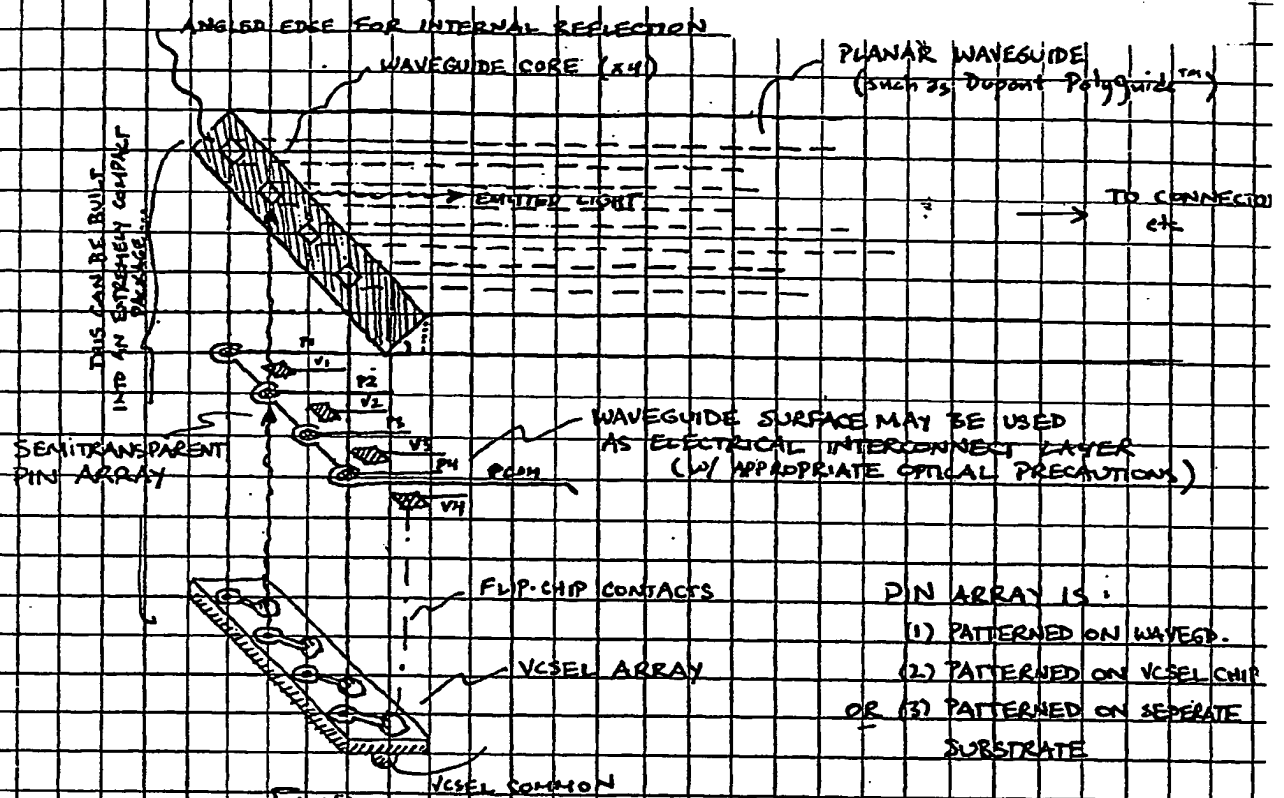 ANGLED EDGE FOR INTERNAL REFLECTION
WAVEGUIDE CORE (x4)
PLANAR WAVEGUIDE
(such as Dupont Polyguide™)
THIS CAN BE BUILT
INTO AN EXTREMELY COMPACT
PACKAGE...
EMITTED LIGHT
TO CONNECTOR
etc
P1
V1
P2
V2
P3
V3
P4
PCOM
V4
SEMITRANSPARENT
PIN ARRAY
WAVEGUIDE SURFACE MAY BE USED
AS ELECTRICAL INTERCONNECT LAYER
(W/ APPROPRIATE OPTICAL PRECAUTIONS)
FLIP-CHIP CONTACTS
VCSEL ARRAY
VCSEL COMMON
PIN ARRAY IS:
(1) PATTERNED ON WAVEGD.
(2) PATTERNED ON VCSEL CHIP
OR (3) PATTERNED ON SEPERATE
SUBSTRATE